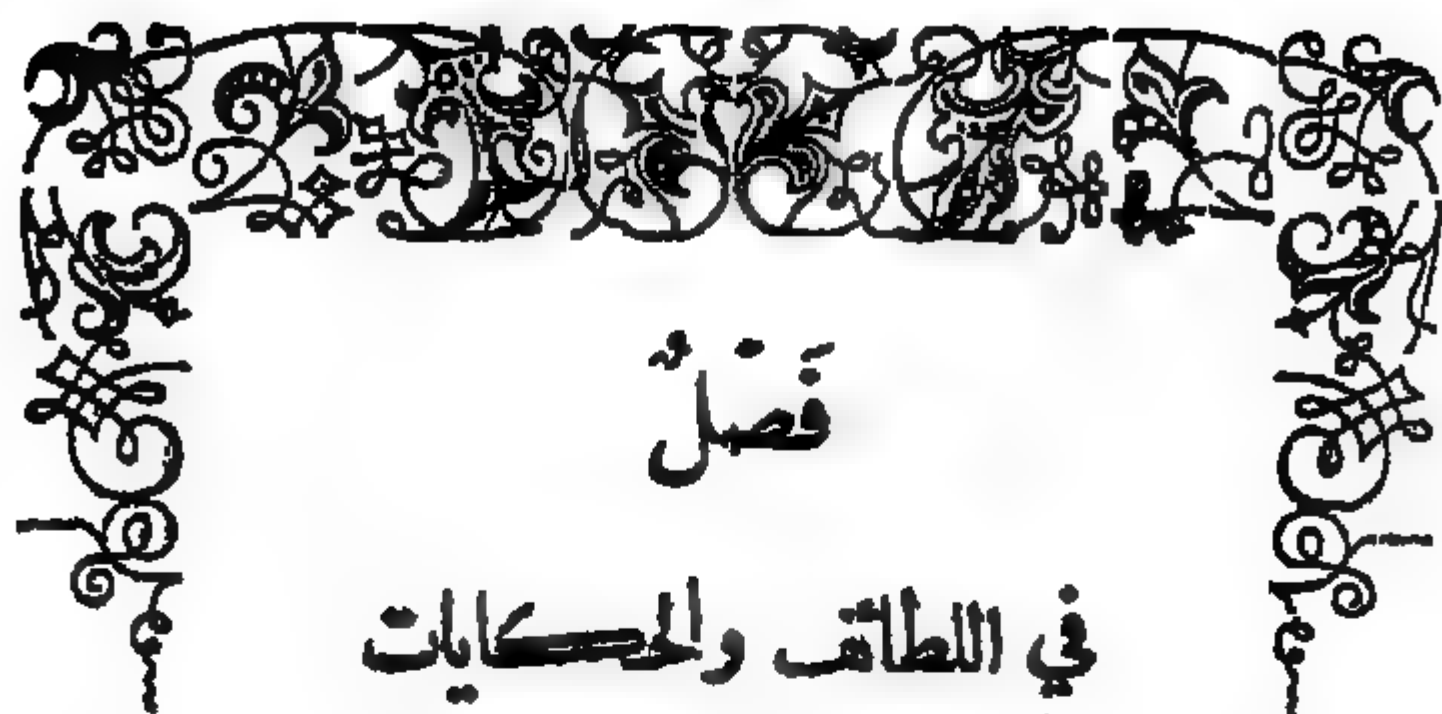 فَصْلٌ
في اللطائف والحكايات